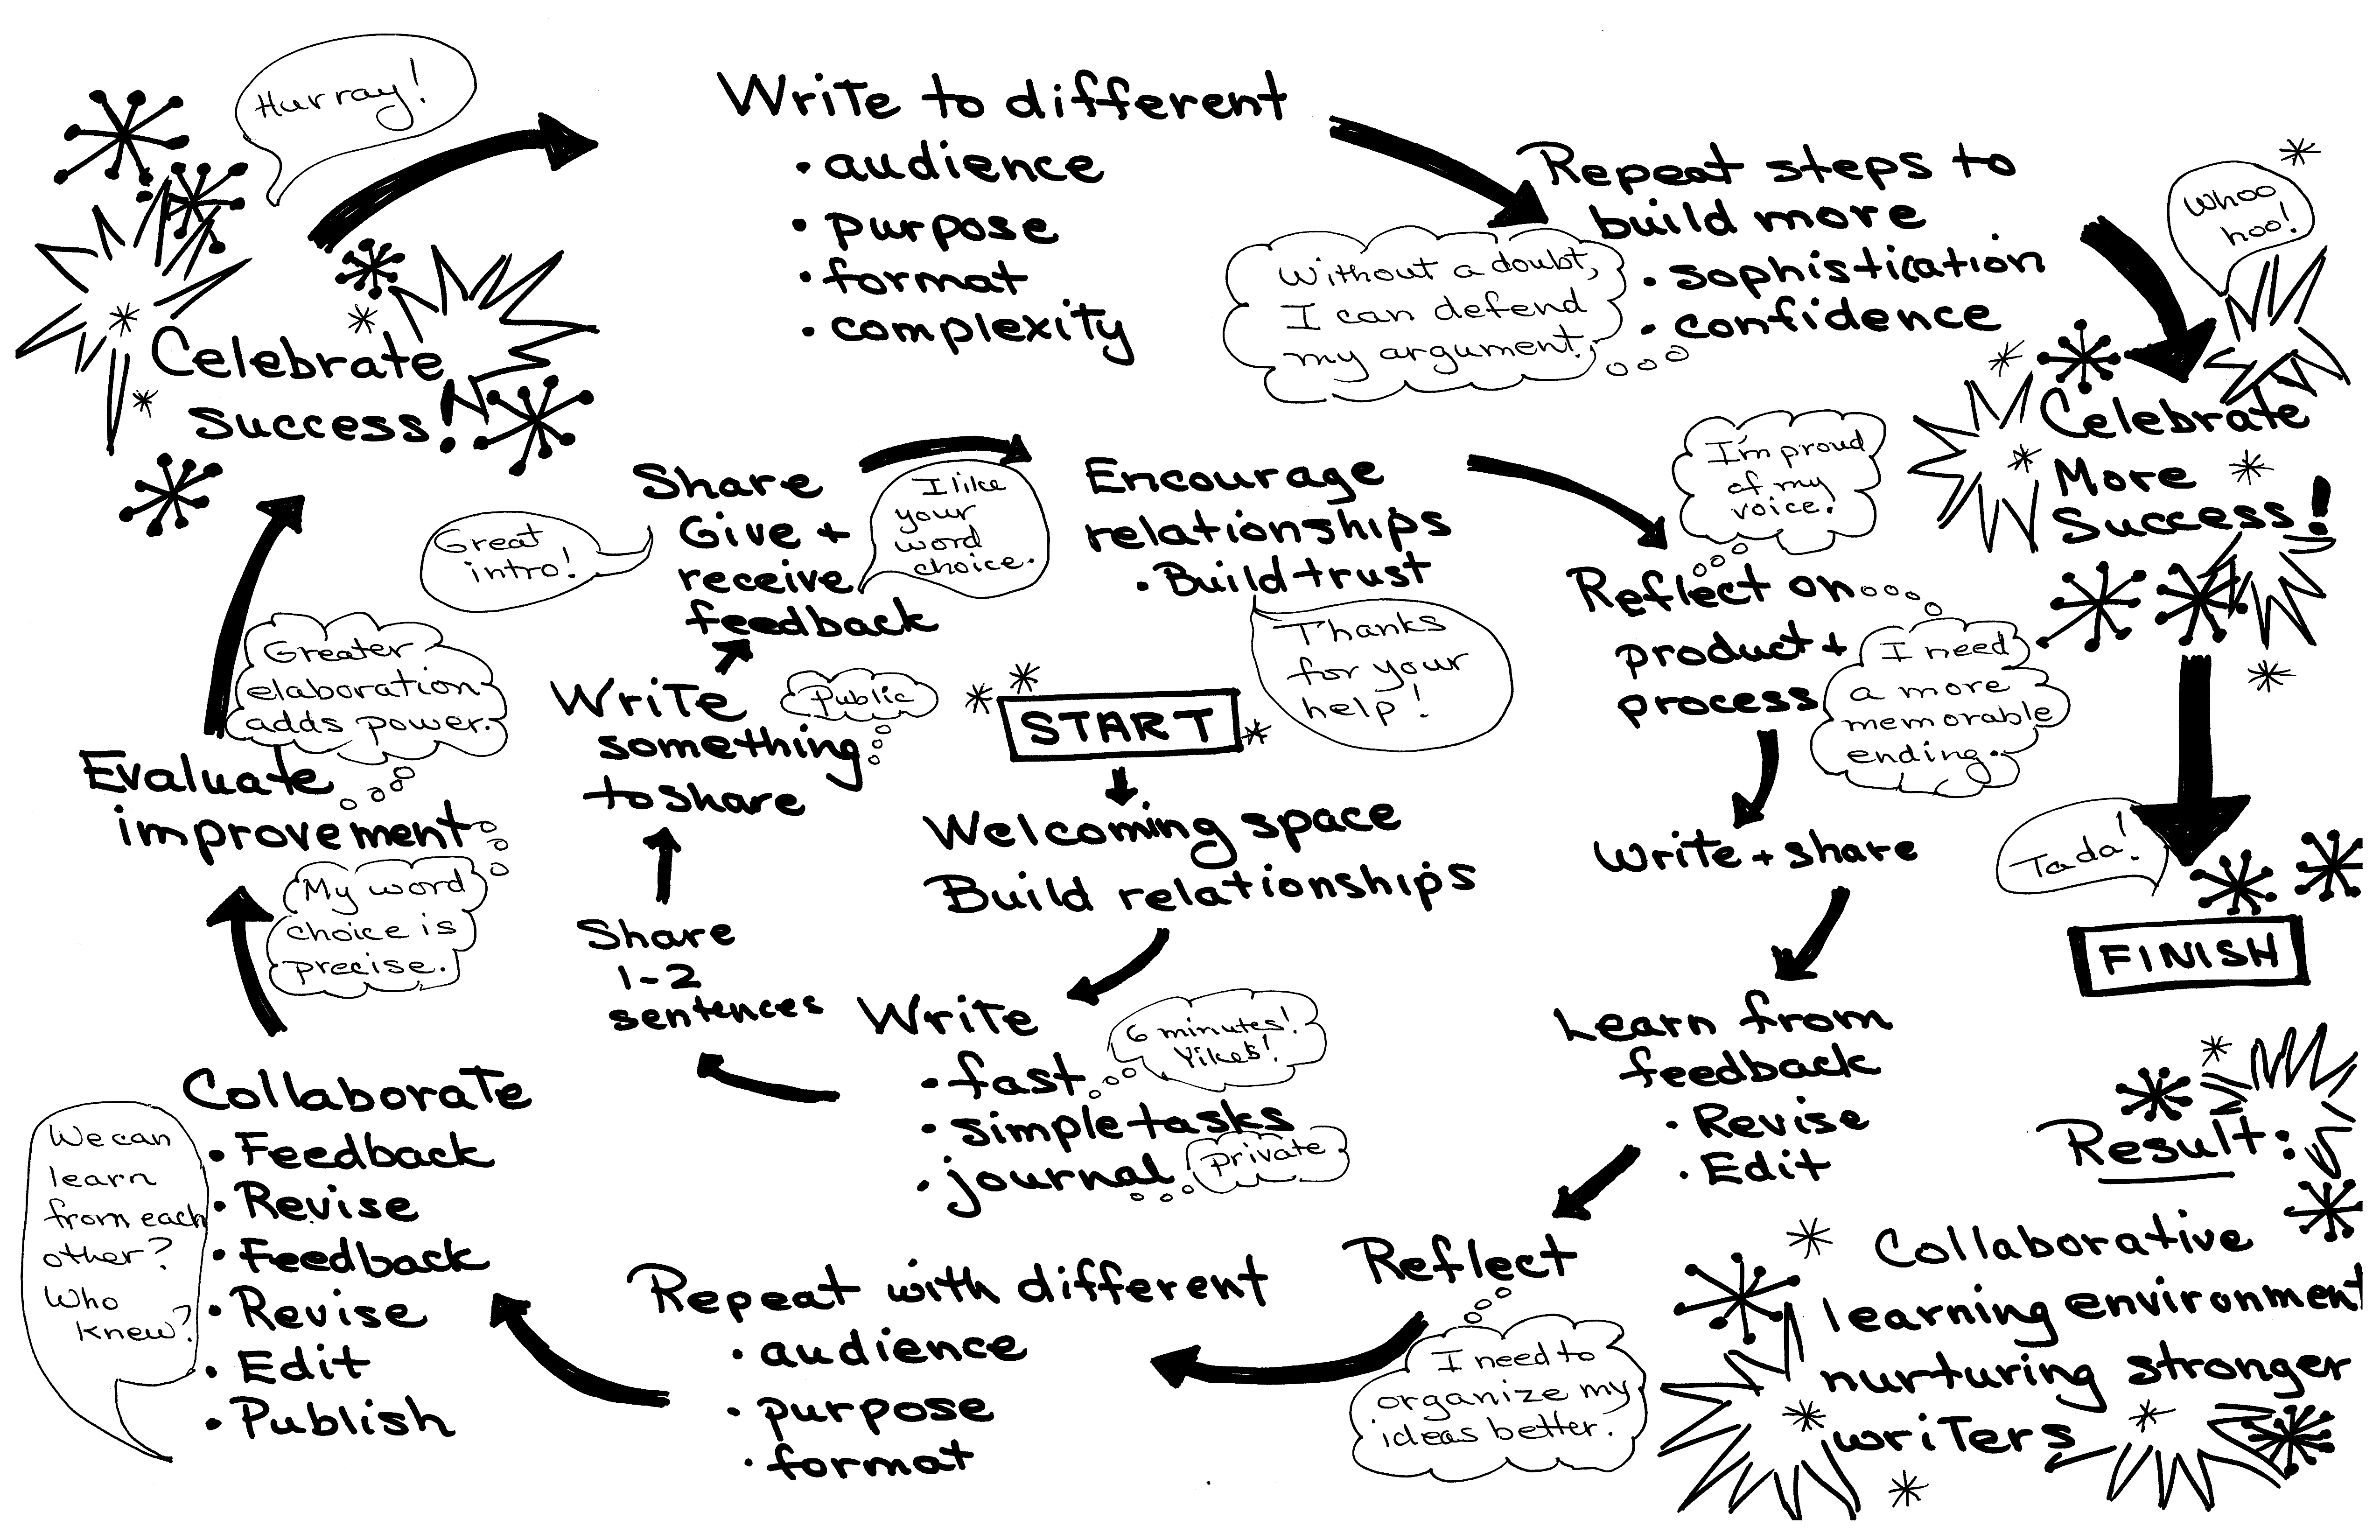 START
Welcoming space
Build relationships
Write
• fast
• simple tasks
• journal
6 minutes!
Yikes!
private
Share
1-2
sentences
Write
something
to share
Public
Share
Give +
receive
feedback
Great
intro!
I like
your
word
choice.
Encourage
relationships
• Build trust
Thanks
for your
help!
Reflect on
product +
process
I'm proud
of my
voice.
I need
a more
memorable
ending.
Write + share
Learn from
feedback
• Revise
• Edit
Reflect
I need to
organize my
ideas better.
Repeat with different
• audience
• purpose
• format
Collaborate
• Feedback
• Revise
• Feedback
• Revise
• Edit
• Publish
We can
learn
from each
other?
Who
knew?
Evaluate
improvement
Greater
elaboration
adds power.
My word
choice is
precise.
Celebrate
Success!
Hurray!
Write to different
• audience
• purpose
• format
• complexity
Repeat steps to
build more
• sophistication
• confidence
Without a doubt,
I can defend
my argument.
Celebrate
More
Success!
Whoo
hoo!
Tada!
FINISH
Result:
Collaborative
learning environment
nurturing stronger
writers